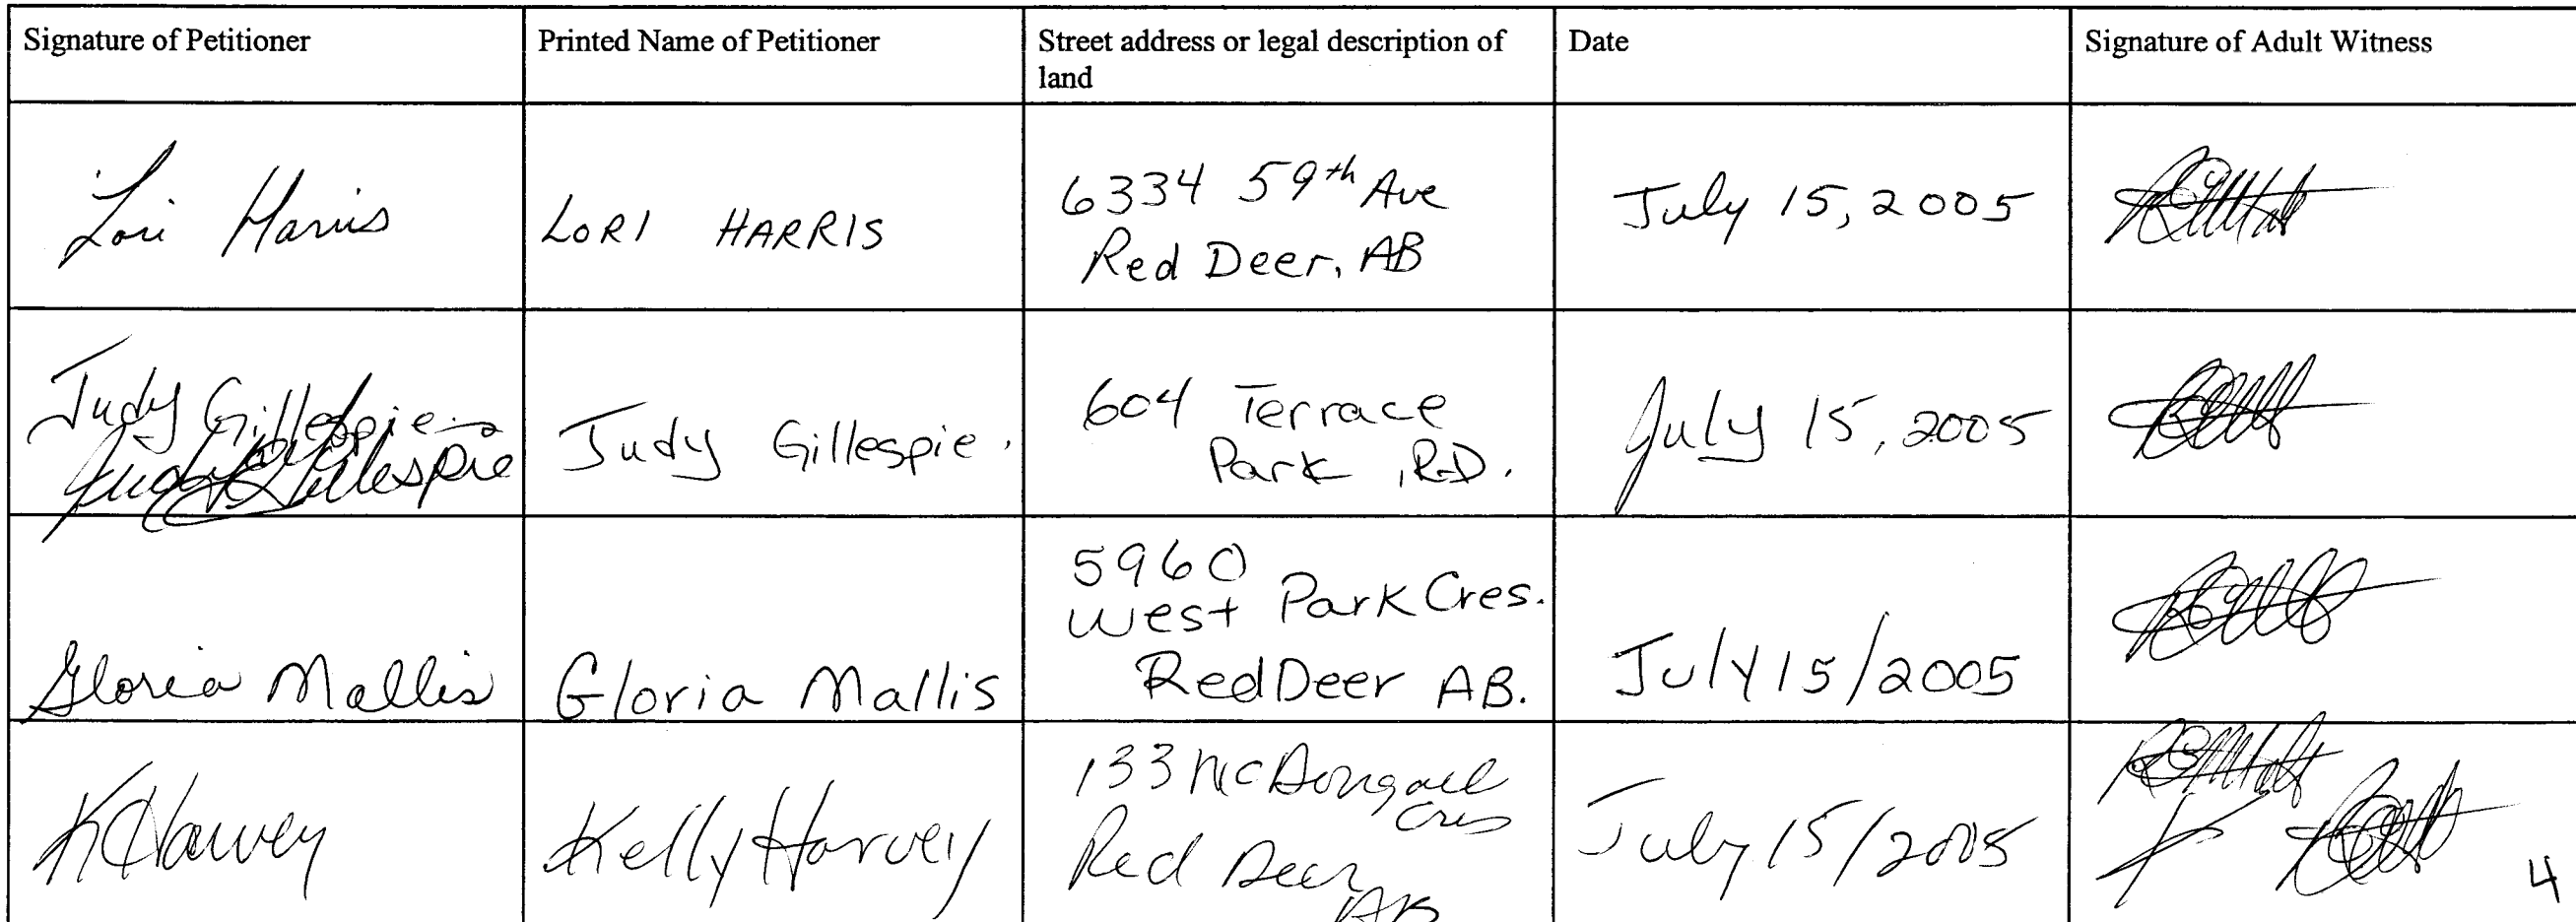 Signature of Petitioner
Printed Name of Petitioner
Street address or legal description of
land
Date
Signature of Adult Witness
Lori Harris
LORI HARRIS
6334 59th Ave
Red Deer, AB
July 15, 2005
Judy Gillespie
Judy Gillespie
Judy Gillespie.
604 Terrace
Park, R.D.
July 15, 2005
Gloria Mallis
Gloria Mallis
5960
West Park Cres.
Red Deer AB.
July 15/2005
K Harvey
Kelly Harvey
133 McDougall
Cres
Red Deer
AB
July 15/2005
4